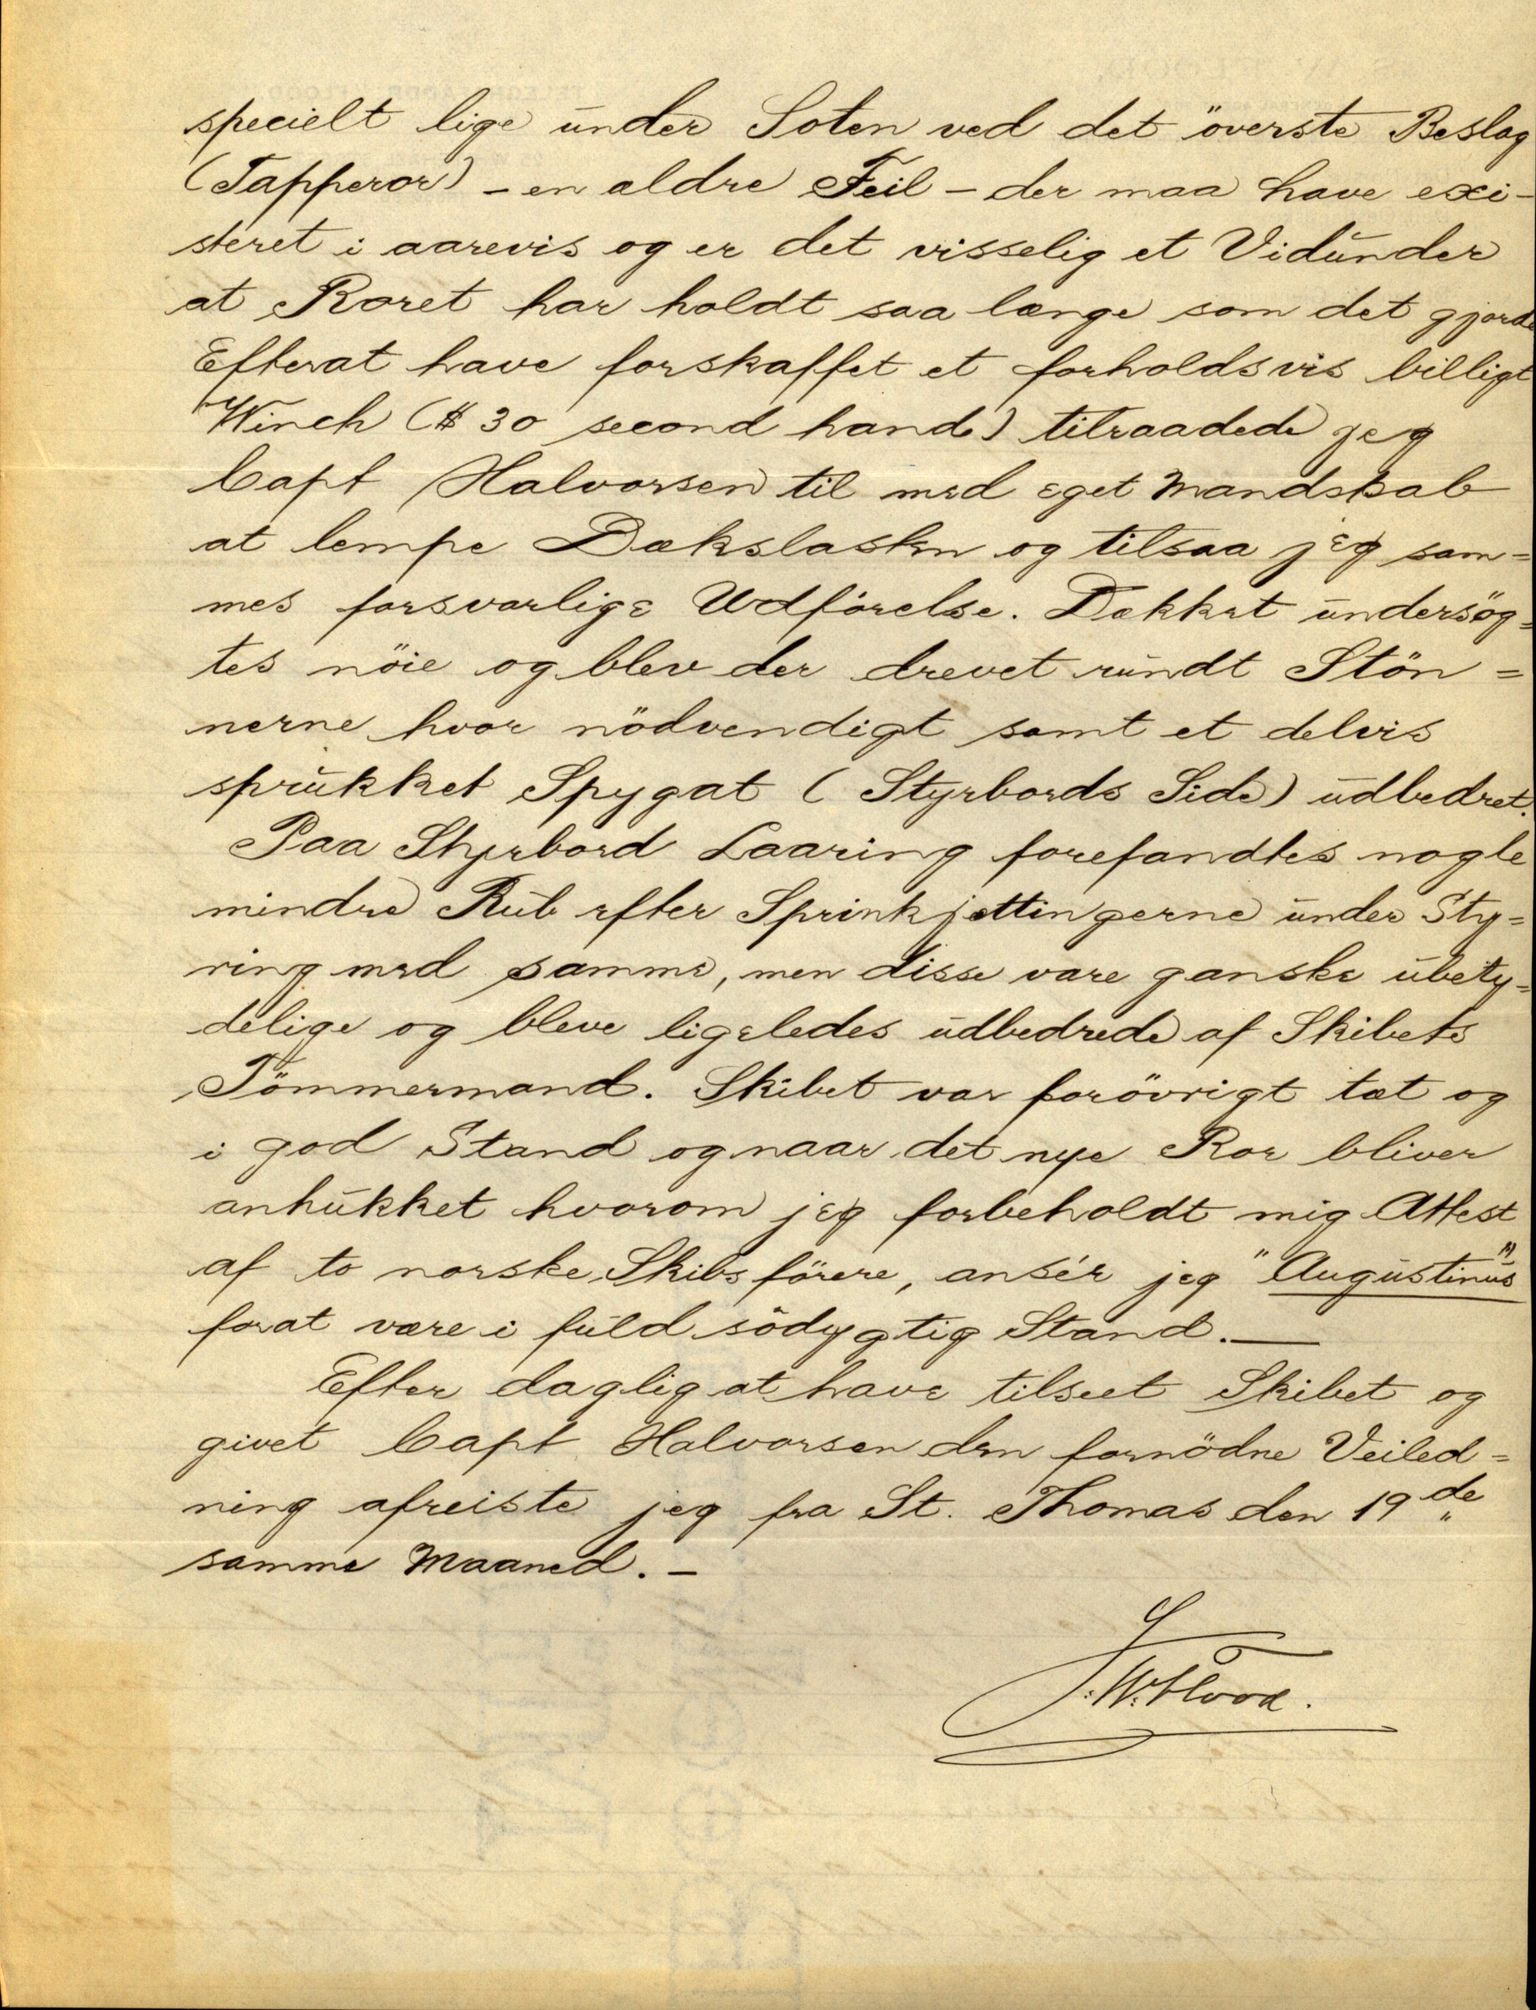 specielt lige under Soten ved det överste Beslag
(Tapperor) - en aldre Feil - der maa have exi-
steret i aarevis og er det visselig et Vidunder
at Roret har holdt saa længe som det gjorde
Efterat have forskaffet et forholdsvis billigt
Winch ($ 30 second hand) tilraadede jeg
Capt Halvorsen til med eget Mandskab
at lempe Dækslasten og tilsaa jeg sam=
mes forsvarlige Udförelse. Dækket undersög=
tes nöie og blev der drevet rundt Stön=
nerne hvor nödvendigt samt et delvis
sprukket Spygat (Styrbords Side) udbedret.
Paa Styrbord Laaring forefandtes nogle
mindre Rub efter Sprinkjettingerne under Sty=
ring med samme, men disse vare ganske ubety=
delige og bleve ligeledes udbedrede af Skibets
Tömmermand. Skibet var forövrigt tæt og
i god Stand og naar det nye Ror bliver
anhukket hvorom jeg forbeholdt mig Attest
af to norske Skibsförere, ansér jeg "Augustinus"
forat være i fuld södygtig Stand. —
Efter daglig at have tilseet Skibet og
givet Capt Halvorsen den fornödne Veiled=
ning afreiste jeg fra St. Thomas den 19de
samme Maaned. -
J. W. Flood.